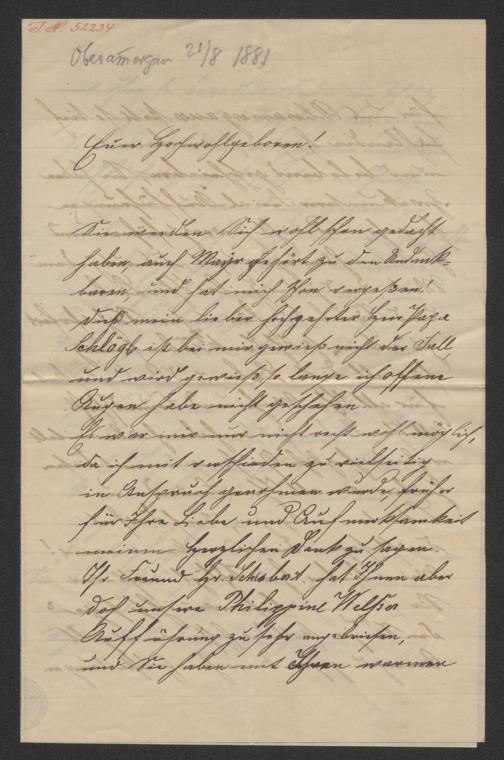 I. N. 52234
Oberammergau 21/8 1881
Euer Hochwohlgeboren!
Sie werden Sich wohl schon gedacht
haben, auch Mayr gehört zu den Undank-
baren, und hat mich schon vergeßen!
Dieß mein lieber hochgeehrter Herr Papa
Schlögl ist bei mir gewiß nicht der Fall
und wird gewiß so lange ich offene
Augen habe nicht geschehen.
Es war mir nur nicht recht wohl möglich,
da ich mit verschieden zu vielseitig
in Anspruch genohmen wurde, früher
für Ihre Liebe und Aufmerksamkeit
meinen herzlichen Dank zu sagen.
Ihr Freund Hr. Schobert hat Ihnen aber
doch unsere Philippine Welser
Aufführung zu sehr angepriesen,
und Sie haben mit Ihren warmen